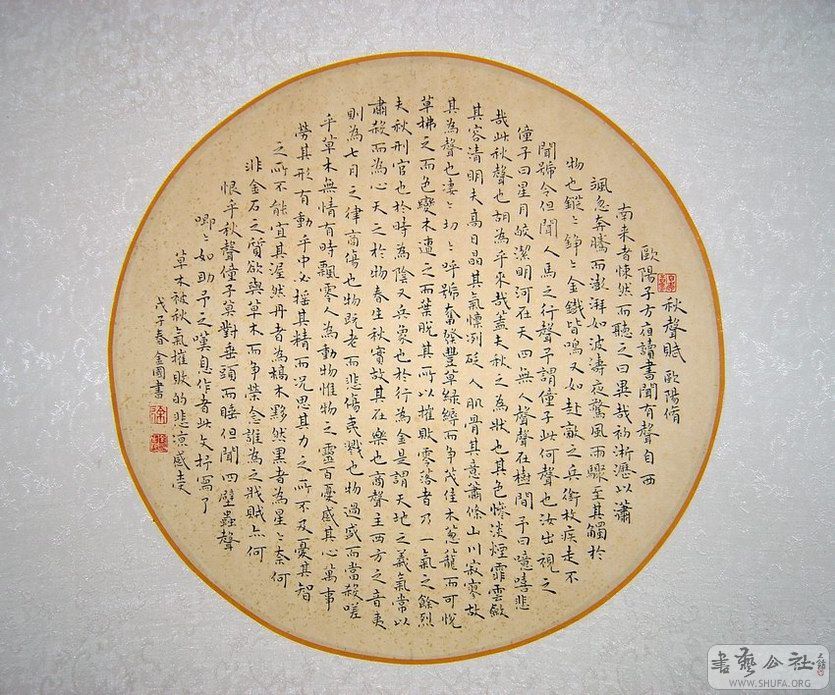 秋聲賦 歐陽脩
歐陽子方夜讀書聞有聲自西
南来者悚然而聽之曰異哉初淅瀝以蕭
颯忽奔騰而澎湃如波濤夜驚風雨驟至其觸於
物也鏦〻錚〻金鐵皆鳴又如赴敵之兵銜枚疾走不
聞號令但聞人馬之行聲予謂僮子此何聲也汝出視之
僮子曰星月皎潔明河在天四無人聲聲在樹間予曰噫嘻悲
哉此秋聲也胡為乎来哉蓋夫秋之為狀也其色慘淡煙霏雲斂
其容清明天高日晶其氣慄冽砭人肌骨其意蕭條山川寂寥故
其為聲也淒〻切〻呼號奮發豐草綠縟而争茂佳木蔥籠而可悅
草拂之而色變木遭之而葉脫其所以摧敗零落者乃一氣之餘烈
夫秋刑官也於時為陰又兵象也於行為金是謂天地之義氣常以
肅殺而為心天之於物春生秋實故其在樂也商聲主西方之音夷
則為七月之律商傷也物既老而悲傷夷戮也物過盛而當殺嗟
乎草木無情有時飄零人為動物惟物之靈百憂感其心萬事
勞其形有動乎中必摇其精而况思其力之所不及憂其智
之所不能宜其渥然丹者為槁木黟然黑者為星〻奈何
非金石之質欲與草木而争榮念誰為之戕賊亦何
恨乎秋聲僮子莫對垂頭而睡但聞四壁蟲聲
唧〻如助予之嘆息作者此文抒寫了
草木被秋氣摧敗的悲凉感受
戊子春金國書
書藝公社
WWW.SHUFA.ORG